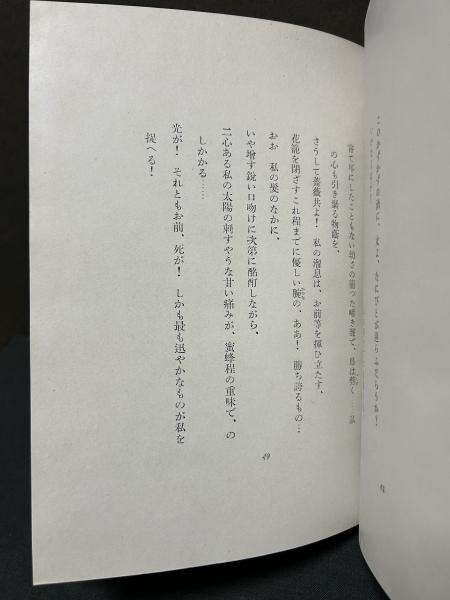 このタイナイの酒に、
鳥は啼く……私
の心も引き裂る物蔭を、
さうして薔薇共よ！ 私の溜息は、お前等を揮ひ立たす、
花籠を閉ざすこれ程までに優しい腕の、ああ！ 勝ち誇るもの…
おお 私の髪のなかに、
いや増す鋭い口吻けに次第に酩酊しながら、
二心ある私の太陽の刺すやうな甘い痛みが、蜜蜂程の重味で、の
しかかる……
光が！ それともお前、死が！ しかも最も迅やかなものが私を
捉へる！
49
48